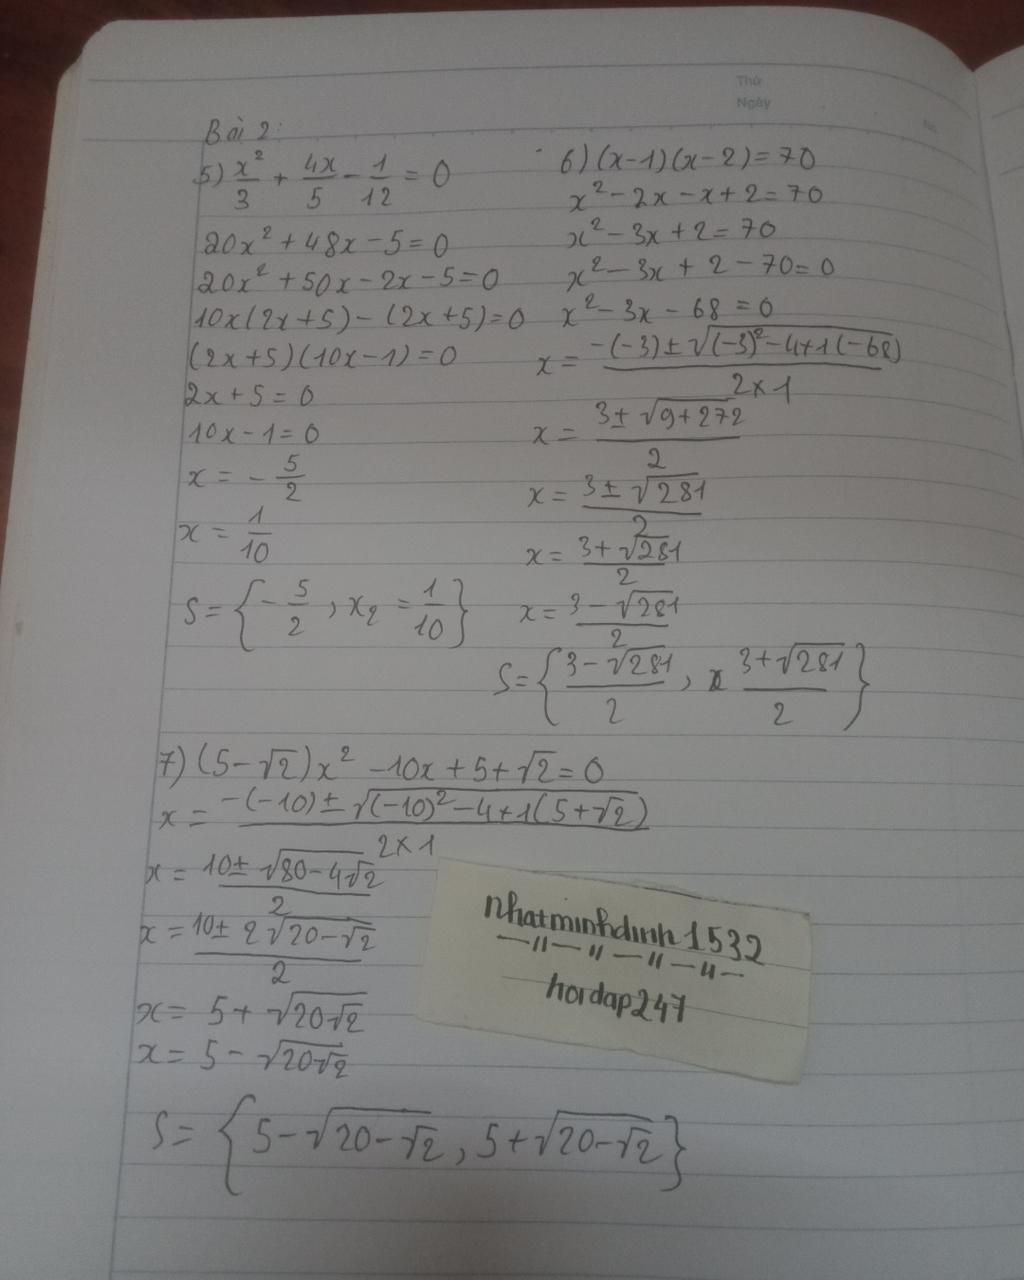 Thứ
Ngày
No.
Bài 2:
5) x²/3 + 4x/5 - 1/12 = 0
20x² + 48x - 5 = 0
20x² + 50x - 2x - 5 = 0
10x(2x+5) - (2x+5) = 0
(2x+5)(10x-1) = 0
2x + 5 = 0
10x - 1 = 0
x = - 5/2
x = 1/10
S = { - 5/2 , x₂ = 1/10 }
6) (x-1)(x-2) = 70
x² - 2x - x + 2 = 70
x² - 3x + 2 = 70
x² - 3x + 2 - 70 = 0
x² - 3x - 68 = 0
x = (-(-3) ± √((-3)² - 4+1(-68)))/(2×1)
x = (3 ± √(9+272))/2
x = (3 ± √281)/2
x = (3 + √281)/2
x = (3 - √281)/2
S = { (3 - √281)/2 , (3 + √281)/2 }
7) (5-√2)x² - 10x + 5 + √2 = 0
x = (-(-10) ± √((-10)² - 4+1(5+√2)))/(2×1)
x = (10 ± √(80-4√2))/2
x = (10 ± 2√(20-√2))/2
x = 5 + √(20√2)
x = 5 - √(20√2)
S = { 5 - √(20-√2) , 5 + √(20-√2) }
nhatminhdinh1532
hoidap247